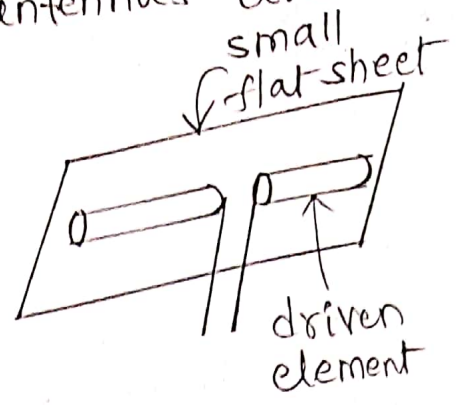 small
flat sheet
driven
element